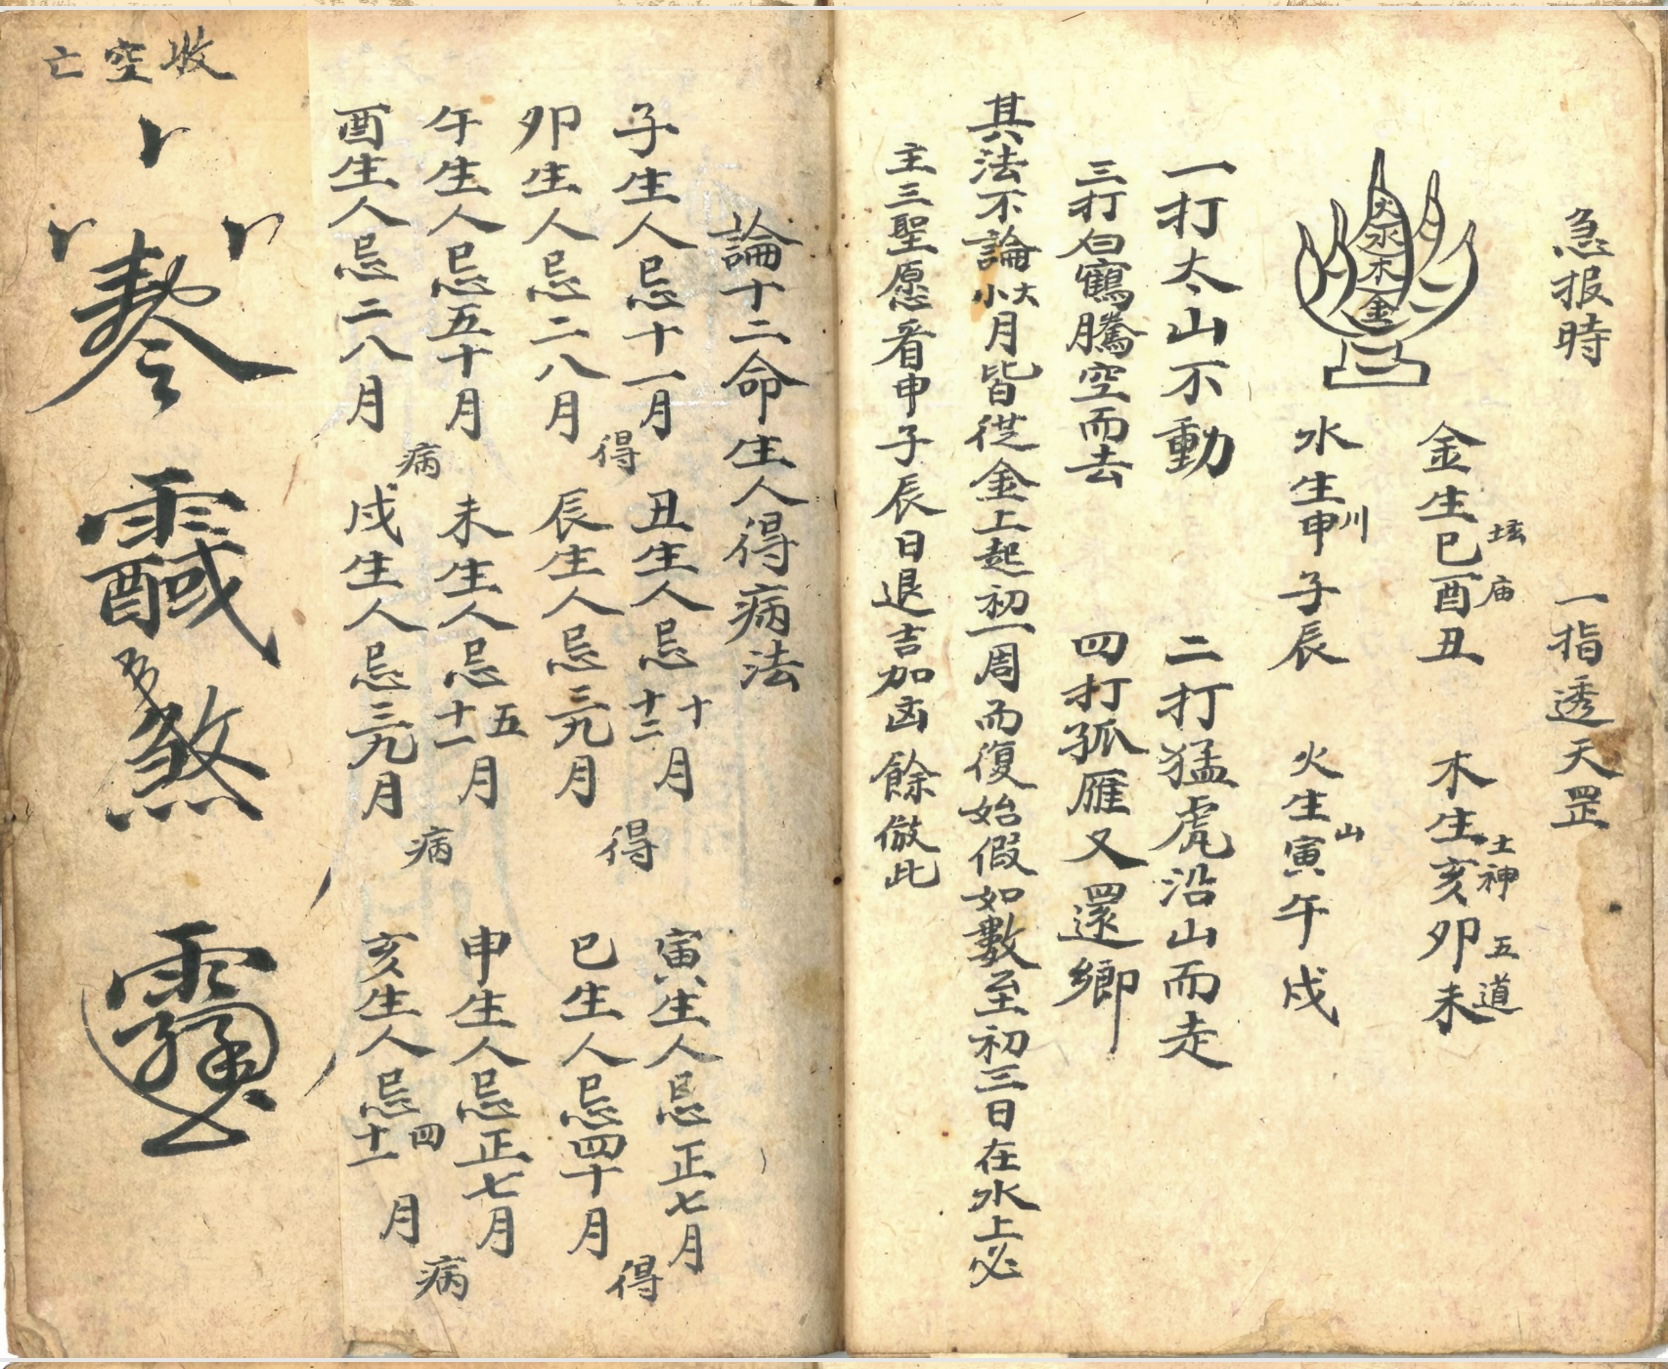 急报時　一指透天罡
金生巳酉丑　木生亥卯未
坛　庙　土神　五道
火水木金
水生申子辰　火生寅午戌
川　山
一打太山不動　二打猛虎沿山而走
三打白鶴騰空而去　四打孤雁又還鄉
其法不論大小月皆從金上起初一周而復始假如數至初三日在水上必
主三聖愿看申子辰日退吉加凶餘倣此
論十二命生人得病法
子生人忌十一月　丑生人忌十十二月　寅生人忌正七月
得　得　得
卯生人忌二八月　辰生人忌三九月　巳生人忌四十月
午生人忌五十月　未生人忌五十一月　申生人忌正七月
病　病　病
酉生人忌二八月　戌生人忌三九月　亥生人忌四十一月
收空亡
煞